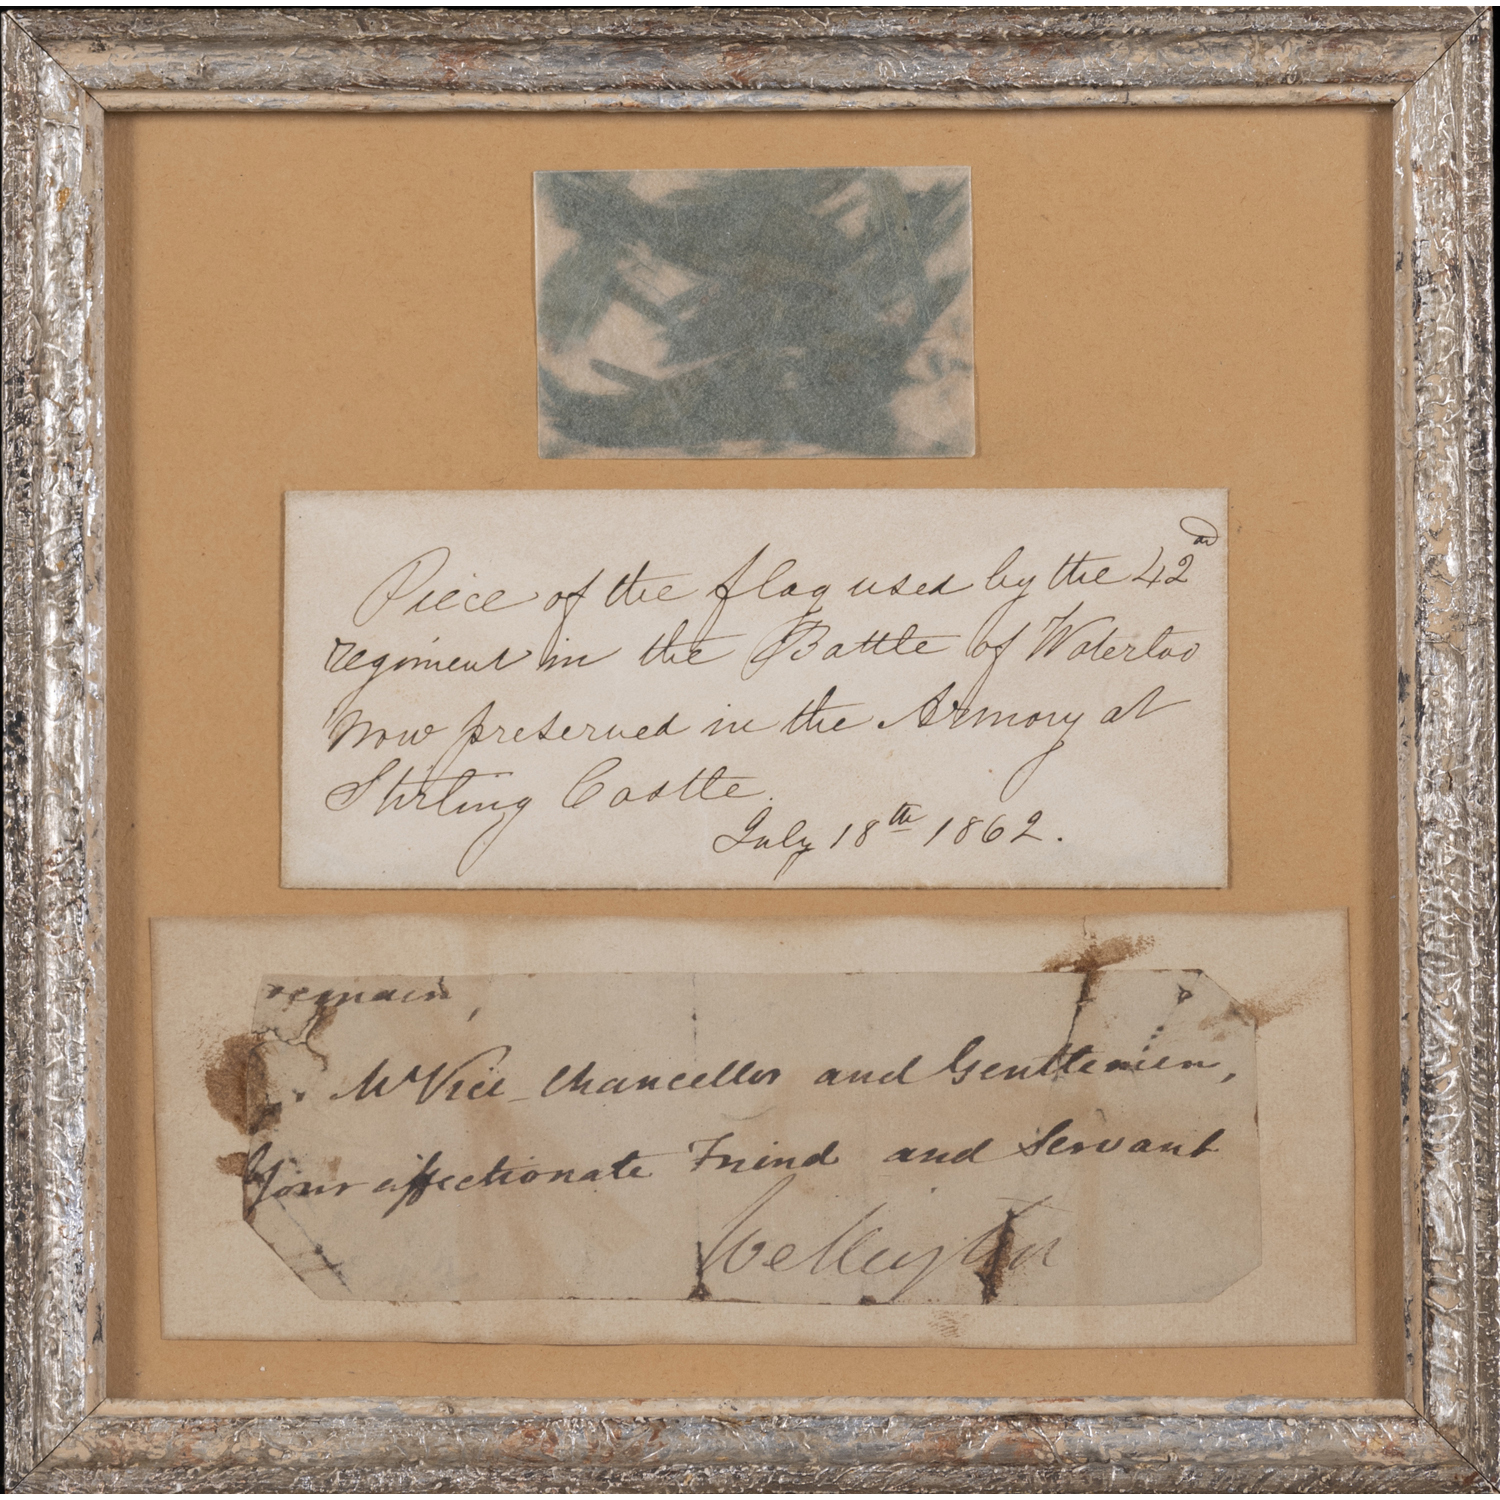 Piece of the flag used by the 42nd
regiment in the Battle of Waterloo
Now preserved in the Armory at
Stirling Castle.
July 18th 1862.
remain,
Mr Vice-Chancellor and Gentlemen,
Your affectionate Friend and Servant
Wellington